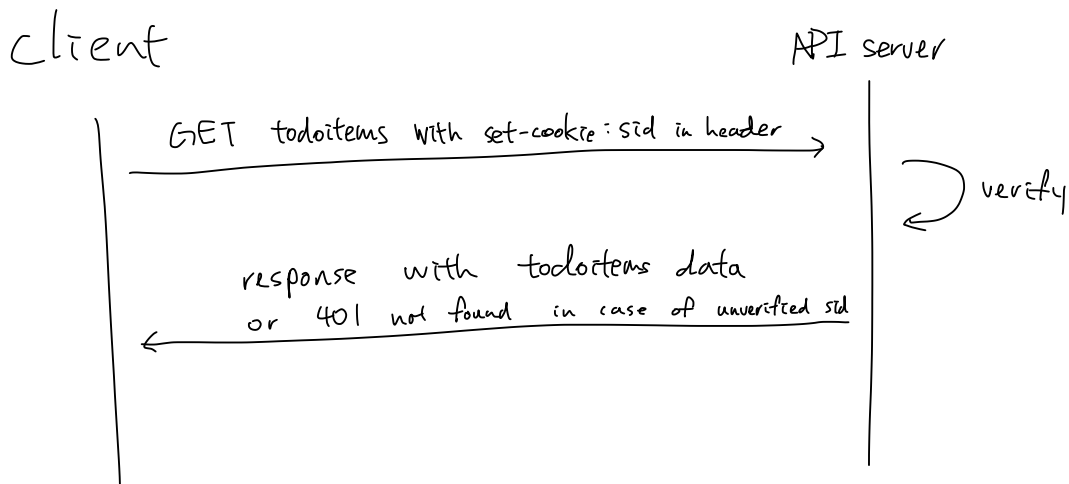 client
API server
GET todoitems with set-cookie : sid in header
verify
response with todoitems data
or 401 not found in case of unverified sid